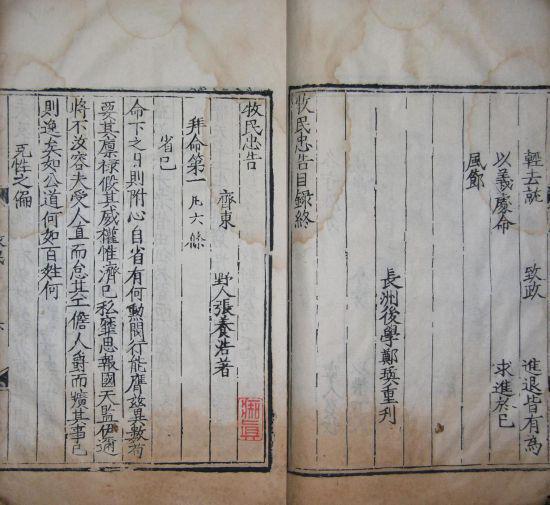 輕去就 致政 進退皆有為
以義處命 求進於己
風節
長洲後學鄭瑛重刊
牧民忠告目録終
牧民忠告
齊東 野人張養浩著
拜命第一 凡六條
省己
命下之日則拊心自省有何勲閥行能膺兹異數苟
要其廪禄假其威權惟濟己私靡思報國天監伊邇
將不汝容夫受人直而怠其工儋人爵而曠其事己
則逸矣如公道何如百姓何
克性之偏